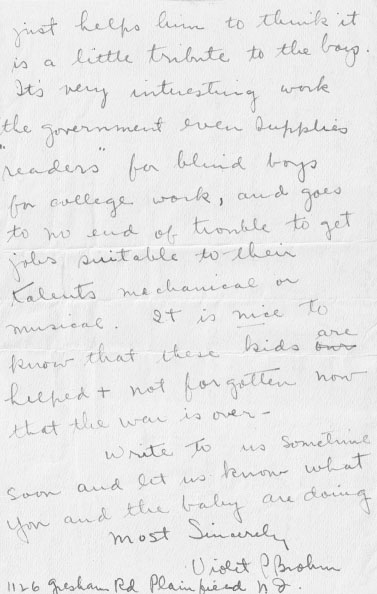 just helps him to think it
is a little tribute to the boys.
It's very interesting work
the government even supplies
"readers" for blind boys
for college work, and goes
to no end of trouble to get
jobs suitable to their
talents mechanical or
musical. It is nice to
know that these kids are
helped + not forgotten now
that the war is over -
Write to us sometime
soon and let us know what
you and the baby are doing
Most Sincerely
Violet P Brohm
1126 Gresham Rd Plainfield N.J.